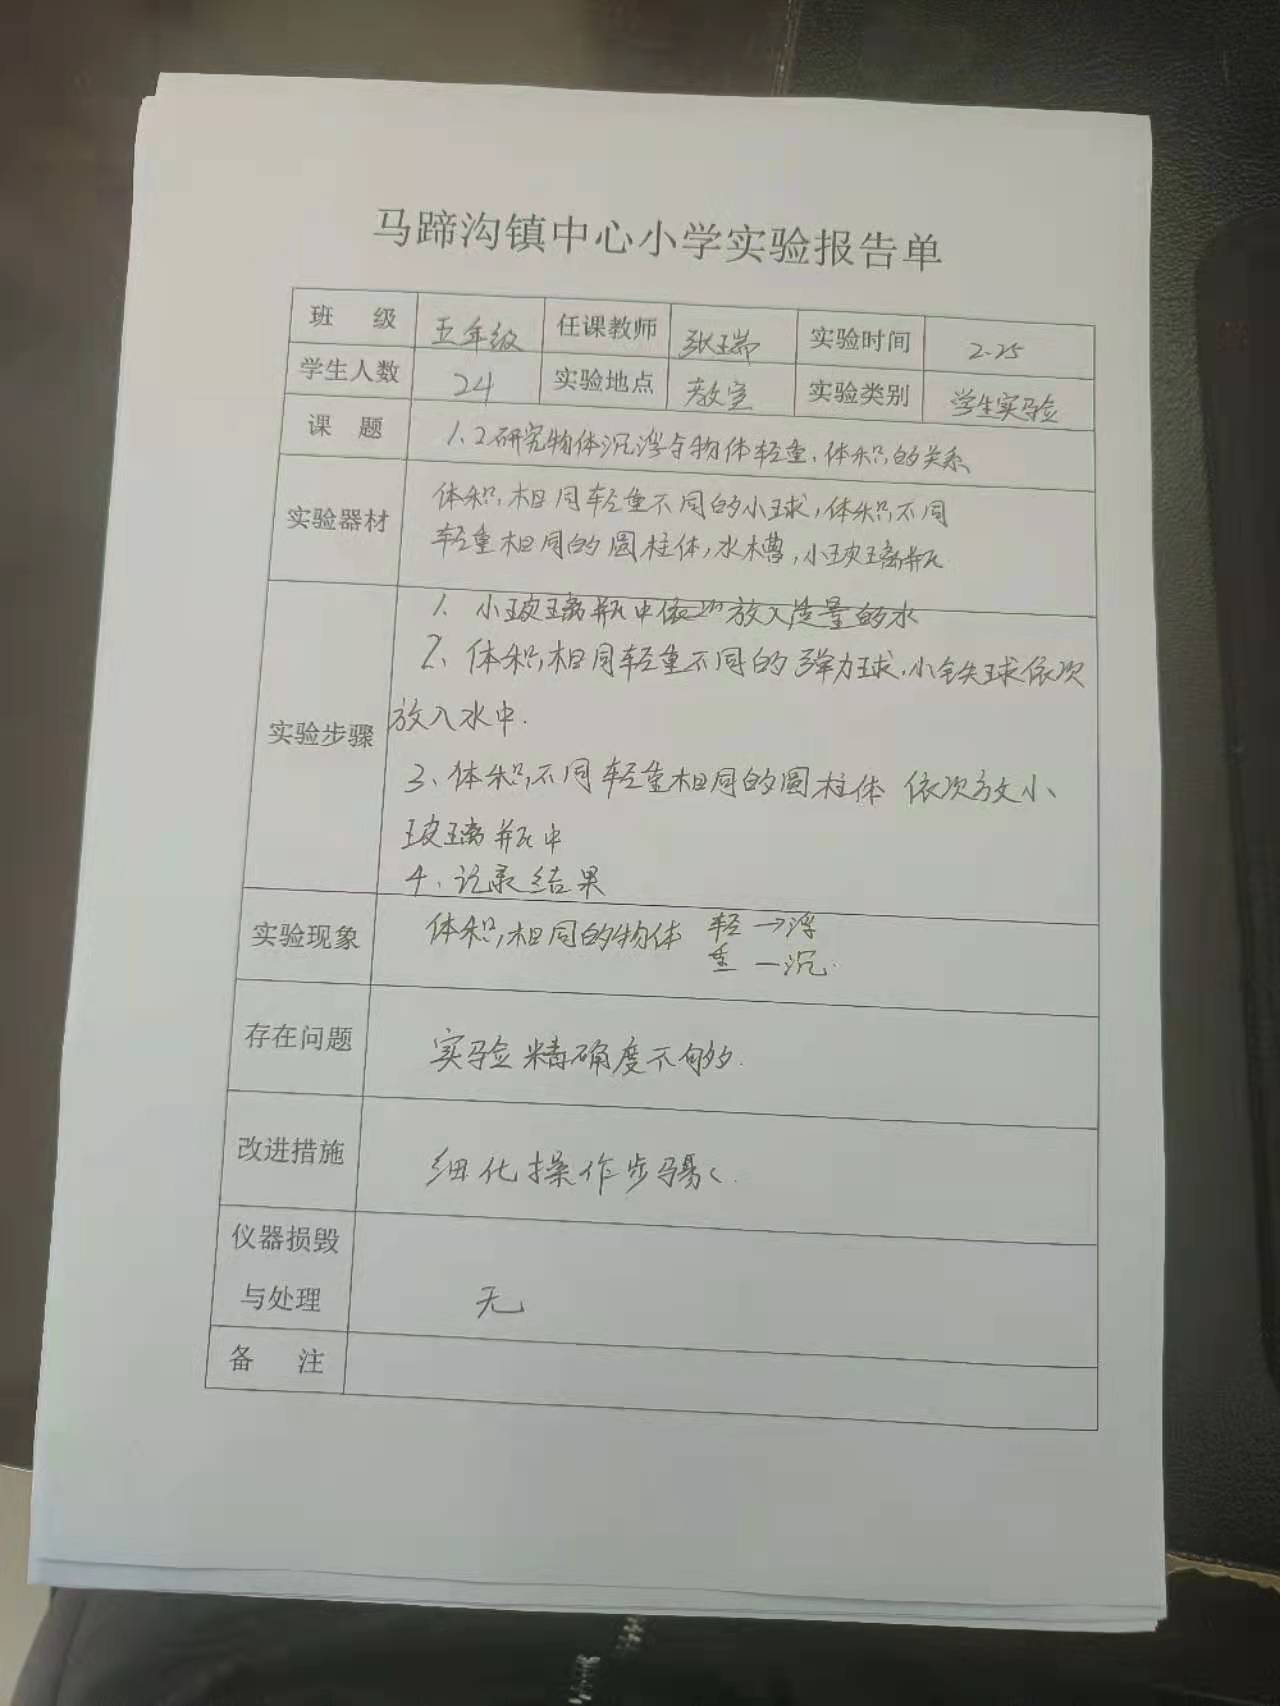 马蹄沟镇中心小学实验报告单
班 级 五年级 任课教师 张瑞 实验时间 2.25
学生人数 24 实验地点 教室 实验类别 学生实验
课 题 1.2研究物体沉浮与物体轻重、体积的关系
实验器材 体积相同轻重不同的小球,体积不同
轻重相同的圆柱体,水槽,小玻璃瓶
实验步骤 1、小玻璃瓶中依次放入质量的水
2、体积相同轻重不同的弹力球、小铁球依次
放入水中.
3、体积不同轻重相同的圆柱体 依次放小
玻璃瓶中
4、记录结果
实验现象 体积相同的物体 轻→浮
重—沉.
存在问题 实验精确度不够.
改进措施 细化操作步骤.
仪器损毁
与处理 无
备 注